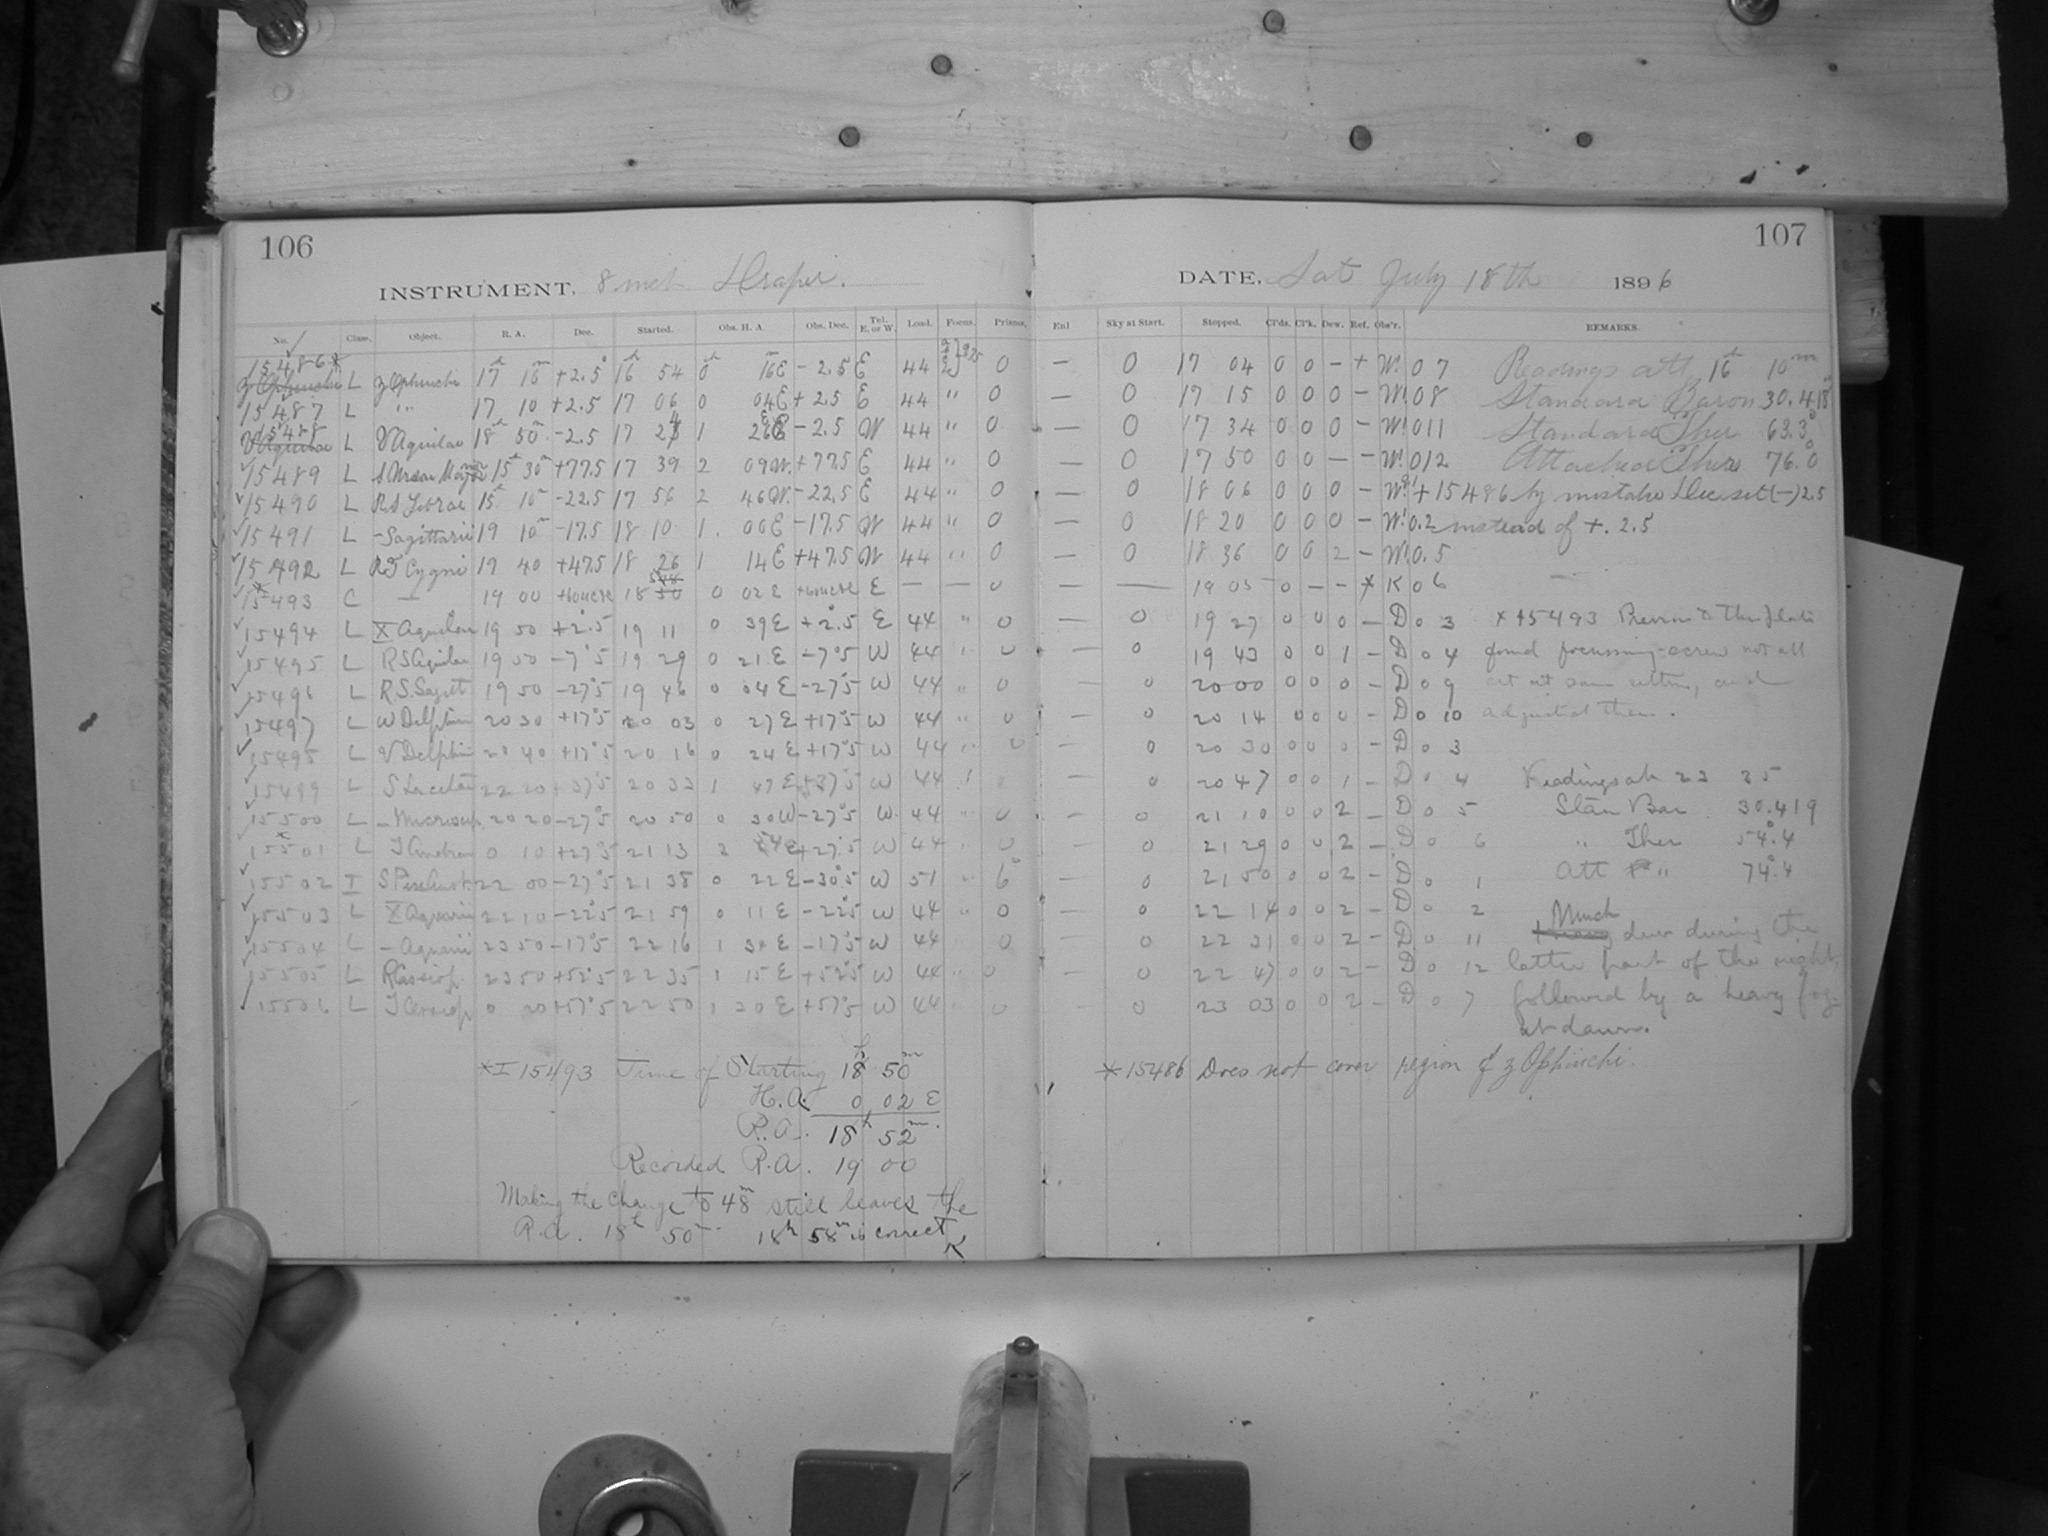 106
107
INSTRUMENT. 8 inch Draper.
DATE, Sat July 18th 1896
No. Class. Object. R. A. Dec. Started. Obs. H. A. Obs. Dec. Tel. E. or W. Load. Focus. Prisms, Enl Sky at Start. Stopped. Cl'ds. Cl'k. Dew. Ref. Obs'r. REMARKS.
15486* L z Ophiuchi 17h 10m +2.5° 16h 54 0h 16mE - 2.5 E 44 0 — 0 17 04 0 0 - + W. 0 7 Readings at 16h 10m
15487 L " 17 10 +2.5 17 06 0 04E + 2.5 E 44 " 0 — 0 17 15 0 0 0 - W. 0 8 Standard Barom 30.418
15488 V Aquilae L V Aquilae 18h 50m -2.5 17 24 1 26E - 2.5 W 44 " 0 — 0 17 34 0 0 0 - W. 0 11 Standard Ther 63.3°
15489 L S Ursae Maj 15h 30m +77.5 17 39 2 09W. +77.5 E 44 " 0 — 0 17 50 0 0 — - W. 0 12 Attached Ther 76.0
15490 L RS Librae 15h 10m -22.5 17 56 2 46W. -22.5 E 44 " 0 — 0 18 06 0 0 0 - W. 0 1 +15486 by mistake Dec set (-) 2.5
15491 L -Sagittarii 19 10m -17.5 18 10 1. 00E -17.5 W 44 " 0 — 0 18 20 0 0 0 - W. 0.2 instead of +. 2.5
15492 L RT Cygni 19 40 +47.5 18 26 1 14E +47.5 W 44 " 0 — 0 18 36 0 0 2 - W. 0.5
15493 * C — 19 00 +60 18 58 0 02 E E — — 0 — — 19 05 0 — - * K 0 6
15494 L X Aquilae 19 50 +2.5 19 11 0 39E +2.5 E 44 " 0 — 0 19 27 0 0 0 - D 0 3 * 15493 Previous to this plate
15495 L RS Aquilae 19 50 -7.5 19 29 0 21 E -7.5 W 44 " 0 — 0 19 43 0 0 1 - D 0 4 found focussing-screw not all
15496 L R.S. Sagitt 19 50 -27.5 19 46 0 04 E -27.5 W 44 " 0 — 0 20 00 0 0 0 - D 0 9 set at same setting, and
15497 L W Delphini 20 30 +17.5 20 03 0 27 E +17.5 W 44 " 0 — 0 20 14 0 0 0 - D 0 10 adjusted them.
15498 L V Delphini 20 40 +17.5 20 16 0 24 E +17.5 W 44 " 0 — 0 20 30 0 0 0 - D 0 3
15499 L S Lacertae 22 20 +37.5 20 33 1 47 E +37.5 W 44 " 0 — 0 20 47 0 0 1 - D 0 4 Readings at 23 25
15500 L - Microscop. 20 20 -27.5 20 50 0 30W -27.5 W. 44 " 0 — 0 21 10 0 0 2 - D 0 5 Stan Bar 30.419
15501 * L T Androm 0 10 +27.5 21 13 2 54 E +27.5 W 44 " 0 — 0 21 29 0 0 2 - D 0 6 " Ther 54.4
15502 I S. Pisc. Aust. 22 00 -27.5 21 38 0 22 E -30.5 W 51 " 6° — 0 21 50 0 0 2 - D 0 1 Att " 74.4
15503 L X Aquarii 22 10 -22.5 21 59 0 11 E -22.5 W 44 " 0 — 0 22 14 0 0 2 - D 0 2 Much
15504 L - Aquarii 23 50 -17.5 22 16 1 34 E -17.5 W 44 " 0 — 0 22 31 0 0 2 - D 0 11 Heavy dew during the
15505 L R Cassiop. 23 50 +52.5 22 35 1 15 E +52.5 W 44 " 0 — 0 22 47 0 0 2 - D 0 12 latter part of the night,
15506 L T Cassiop 0 20 +57.5 22 50 1 30 E +57.5 W 44 " 0 — 0 23 03 0 0 2 - D 0 7 followed by a heavy fog
at dawn.
*I 15493 Time of Starting 18h 50m
*15486 Does not cover region of z Ophiuchi.
H.A. 0 02 E
R.A. 18h 52m.
Recorded R.A. 19 00
Making the change to 48m still leaves the
R.A. 18h 50m. 18h 58m is correct K